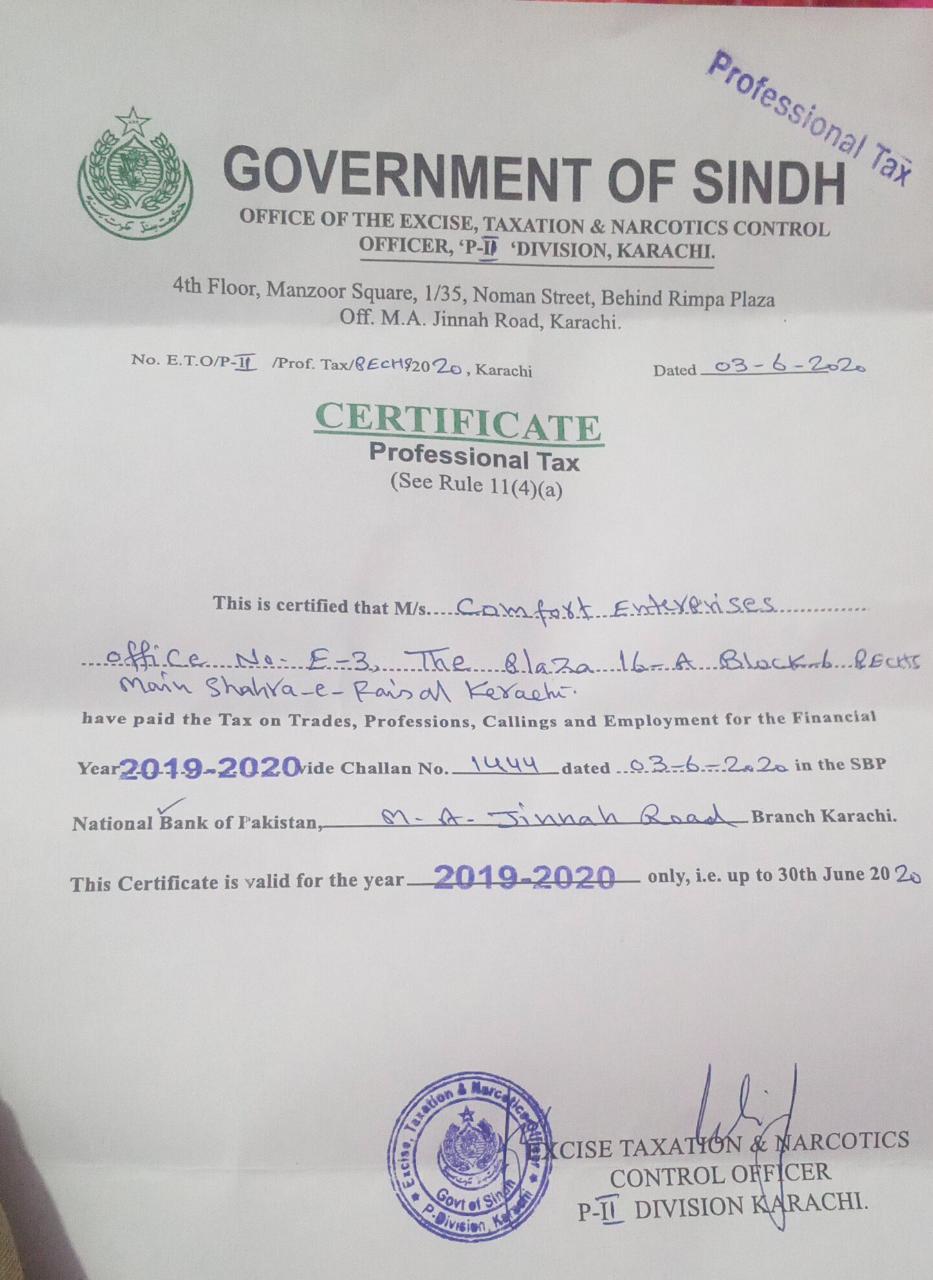 Professional Tax
حکومت سندھ
GOVERNMENT OF SINDH
OFFICE OF THE EXCISE, TAXATION & NARCOTICS CONTROL
OFFICER, ‘P-II ‘DIVISION, KARACHI.
4th Floor, Manzoor Square, 1/35, Noman Street, Behind Rimpa Plaza
Off. M.A. Jinnah Road, Karachi.
No. E.T.O/P-II /Prof. Tax/PECHS/2020, Karachi Dated 03-6-2020
CERTIFICATE
Professional Tax
(See Rule 11(4)(a)
This is certified that M/s.... Comfort Enterprises
office No- E-3, The Plaza 16-A Block-6 PECHS
Main Shahra-e-Faisal Kerachi.
have paid the Tax on Trades, Professions, Callings and Employment for the Financial
Year 2019-2020 vide Challan No. 1444 dated 03-6-2020 in the SBP
National Bank of Pakistan, M-A-Jinnah Road Branch Karachi.
This Certificate is valid for the year 2019-2020 only, i.e. up to 30th June 2020
Excise, Taxation & Narcotics Officer
Govt of Sindh
P-Division, Karachi
EXCISE TAXATION & NARCOTICS
CONTROL OFFICER
P-II DIVISION KARACHI.